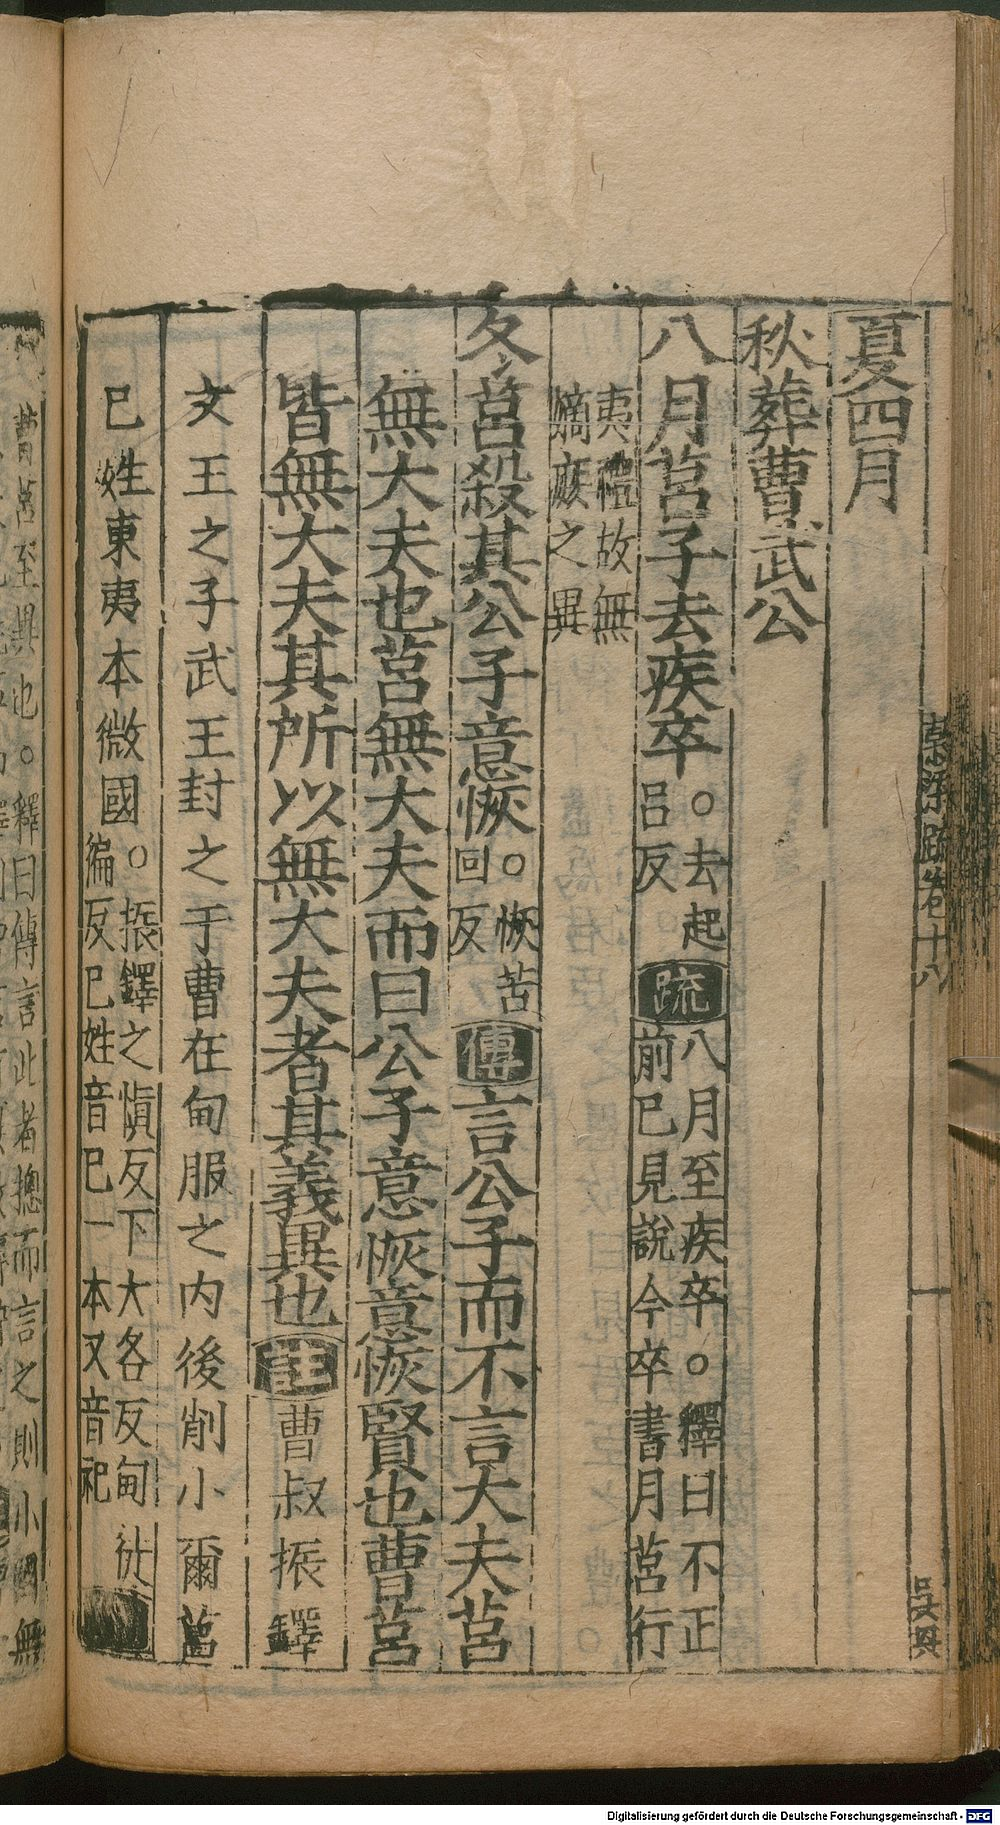 夏四月
秋葬曹武公
八月莒子去疾卒。去起呂反疏八月至疾卒。釋曰不正前已見說今卒書月莒行
夷禮故無嫡庶之異
冬莒殺其公子意恢。恢苦回反傳言公子而不言大夫莒
無大夫也莒無大夫而曰公子意恢意恢賢也曹莒
皆無大夫其所以無大夫者其義異也註曹叔振鐸
文王之子武王封之于曹在甸服之內後削小爾莒
己姓東夷本微國。振鐸之愼反下大各反甸徒徧反己姓音己一本又音祀
梁浮疏卷十八
一
Digitalisierung gefördert durch die Deutsche Forschungsgemeinschaft - DFG